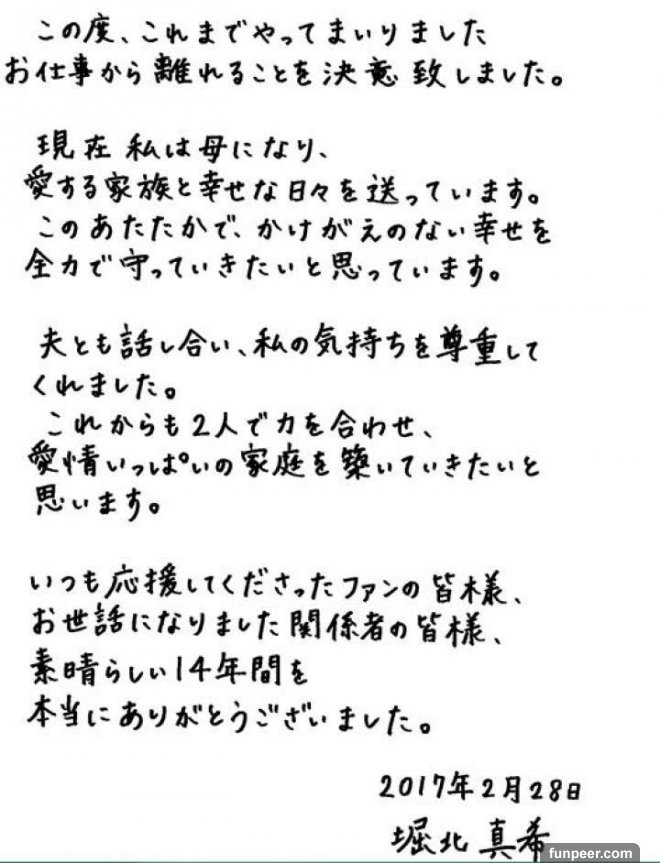 この度、これまでやってまいりました
お仕事から離れることを決意致しました。
現在私は母になり、
愛する家族と幸せな日々を送っています。
このあたたかで、かけがえのない幸せを
全力で守っていきたいと思っています。
夫とも話し合い、私の気持ちを尊重して
くれました。
これからも2人で力を合わせ、
愛情いっぱいの家庭を築いていきたいと
思います。
いつも応援してくださったファンの皆様、
お世話になりました関係者の皆様、
素晴らしい14年間を
本当にありがとうございました。
2017年2月28日
堀北真希
funpeer.com